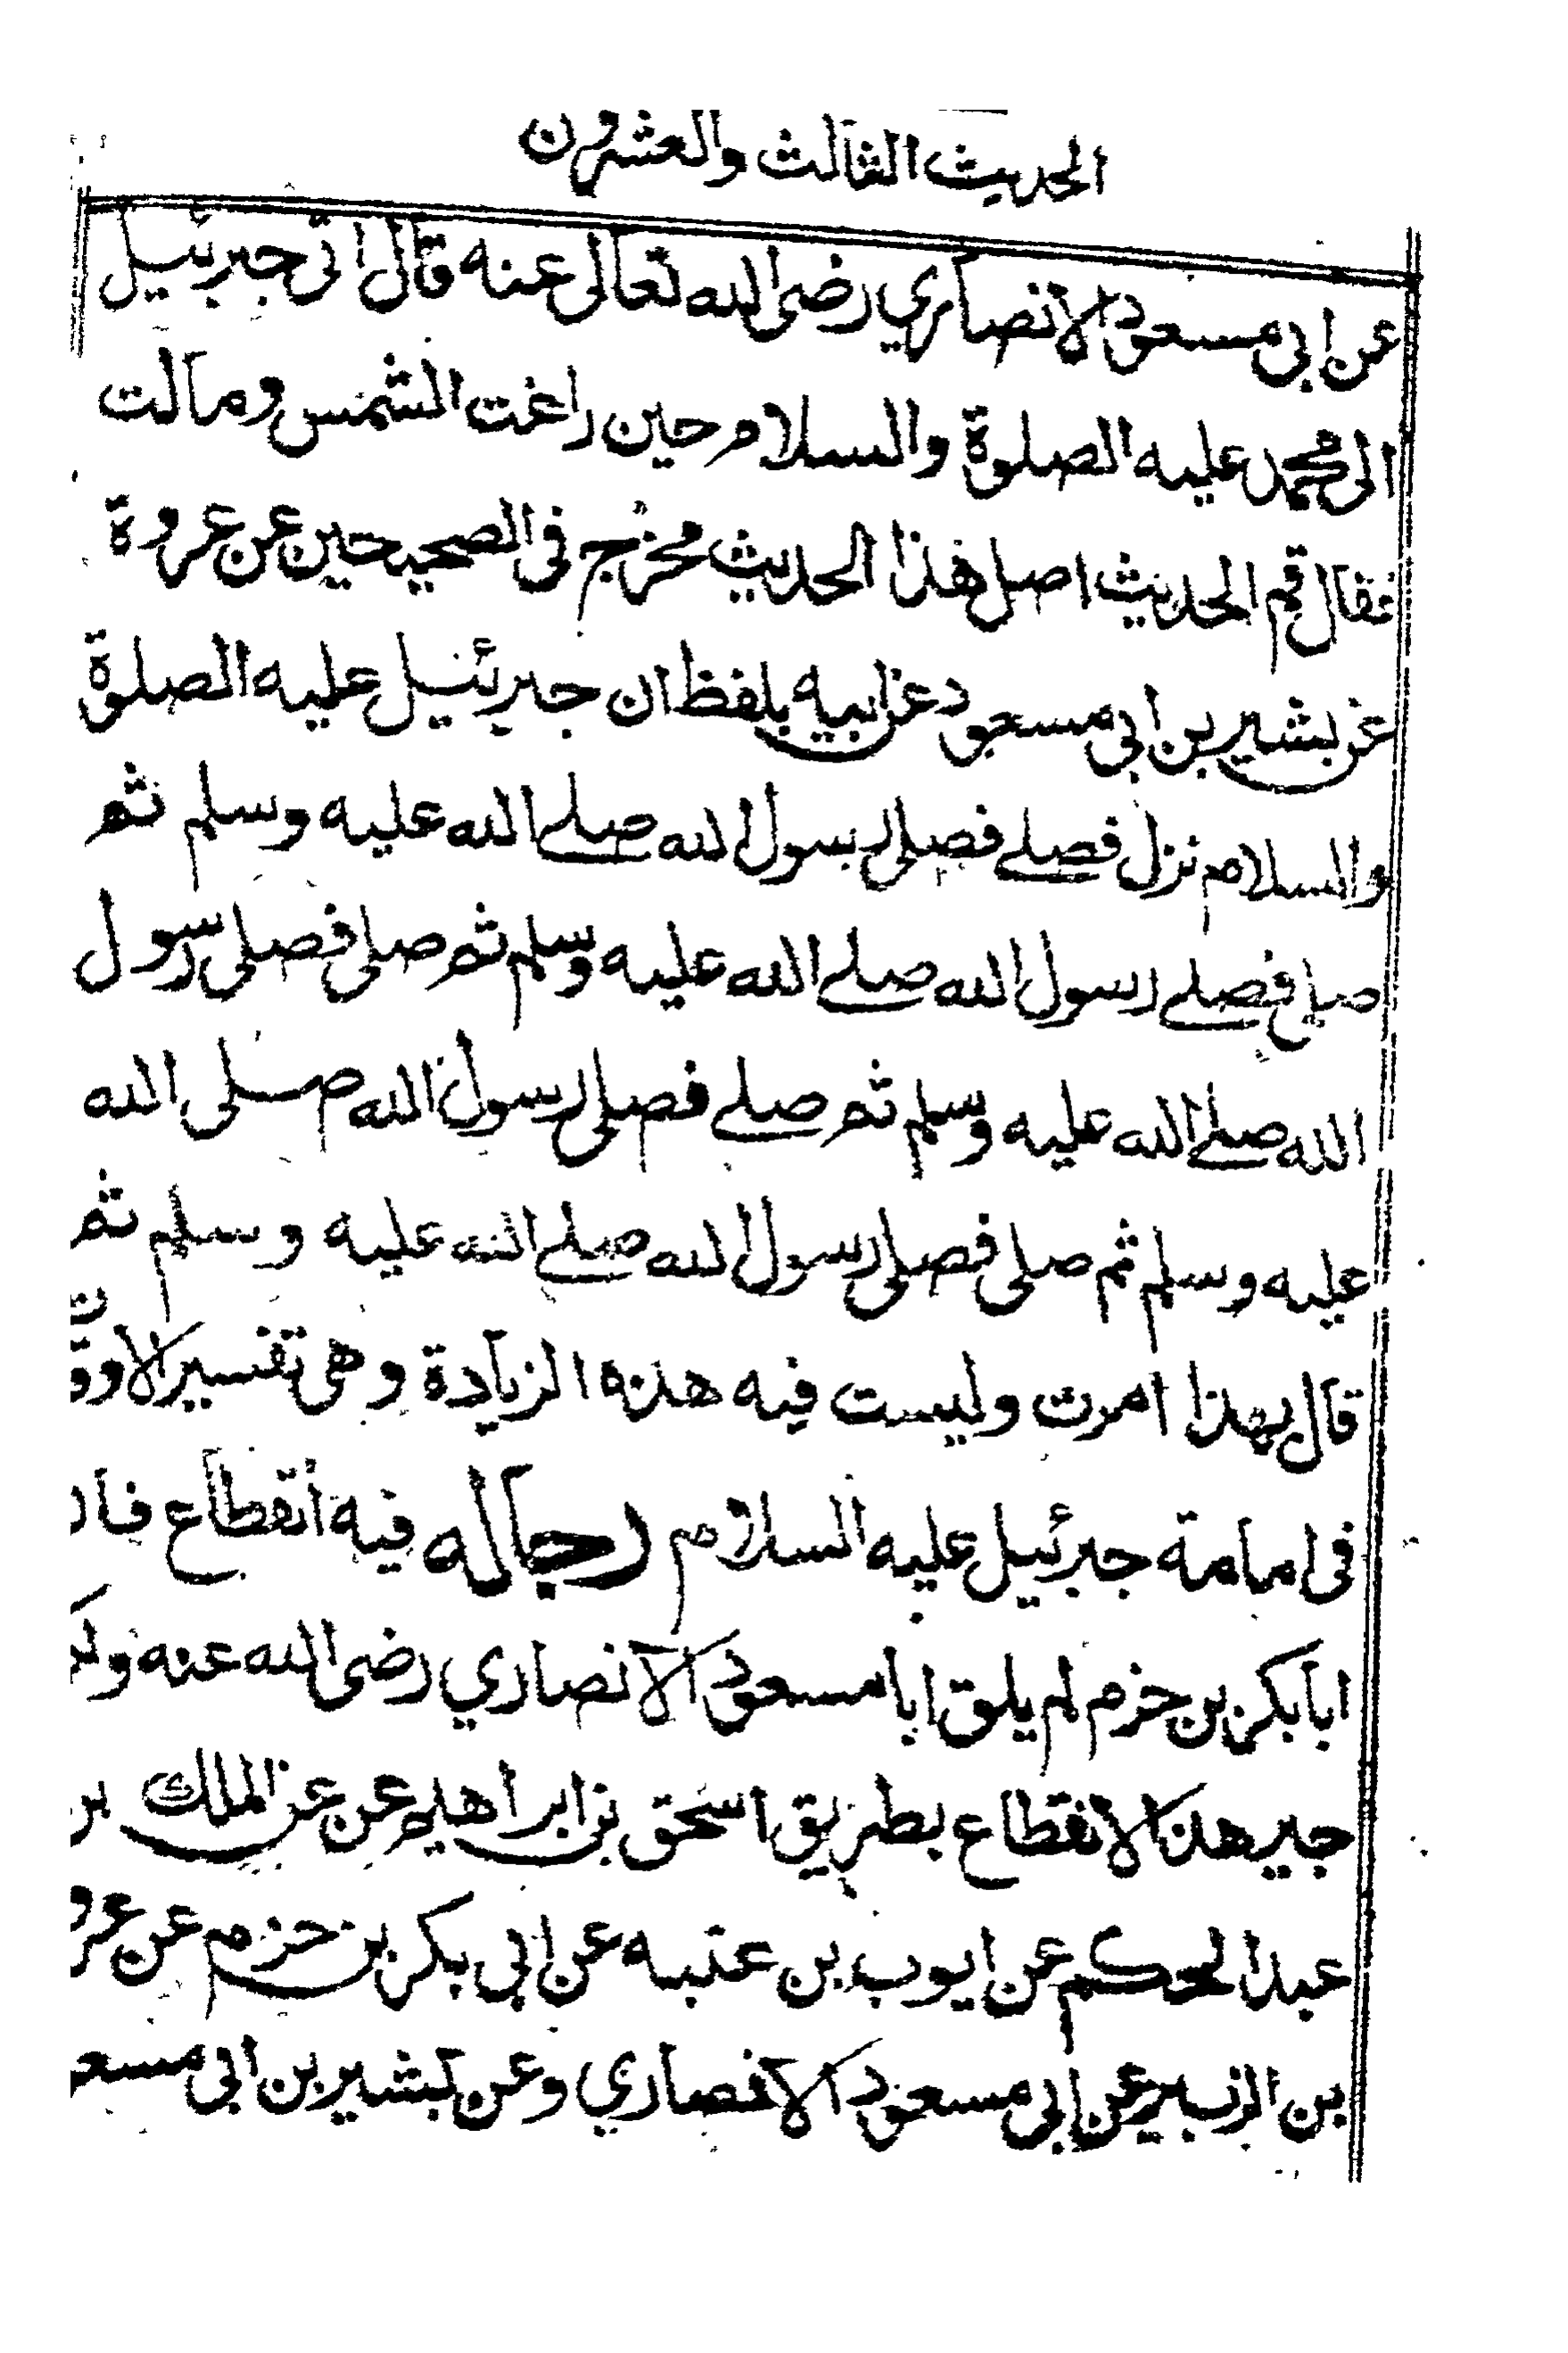 الحديث الثالث والعشرون
عن ابى مسعود الانصاري رضى الله تعالى عنه قال اتى جبرئيل
الى محمد عليه الصلوة والسلام حين زاغت الشمس ومالت
فقال قم الحديث اصل هذا الحديث مخرج فى الصحيحين عن عروة
عن بشير بن ابى مسعود عن ابيه بلفظ ان جبرئيل عليه الصلوة
والسلام نزل فصلے فصلى رسول الله صلے الله عليه وسلم ثم
صلے فصلے رسول الله صلے الله عليه وسلم ثم صلى فصلى رسول
الله صلے الله عليه وسلم ثم صلے فصلى رسول الله صلى الله
عليه وسلم ثم صلى فصلى رسول الله صلے الله عليه وسلم ثم
قال بهذا امرت وليست فيه هذه الزيادة وهى تفسير الاوقات
فى امامة جبرئيل عليه السلام رجاله فيه انقطاع فان
ابابكر بن حزم لم يلق ابا مسعود الانصاري رضى الله عنه
جبر هذا الانقطاع بطريق اسحق بن ابراهيم عن عن الملك بن
عبد الحكم عن ايوب بن عتبه عن ابى بكر بن حزم عن
بن الزبير عن ابى مسعود الانصاري وعن بشير بن ابى